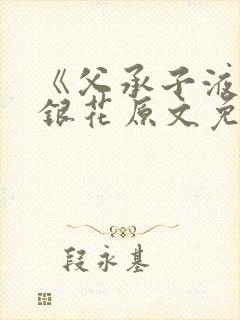 《父承子液
銀花原文免
段永基